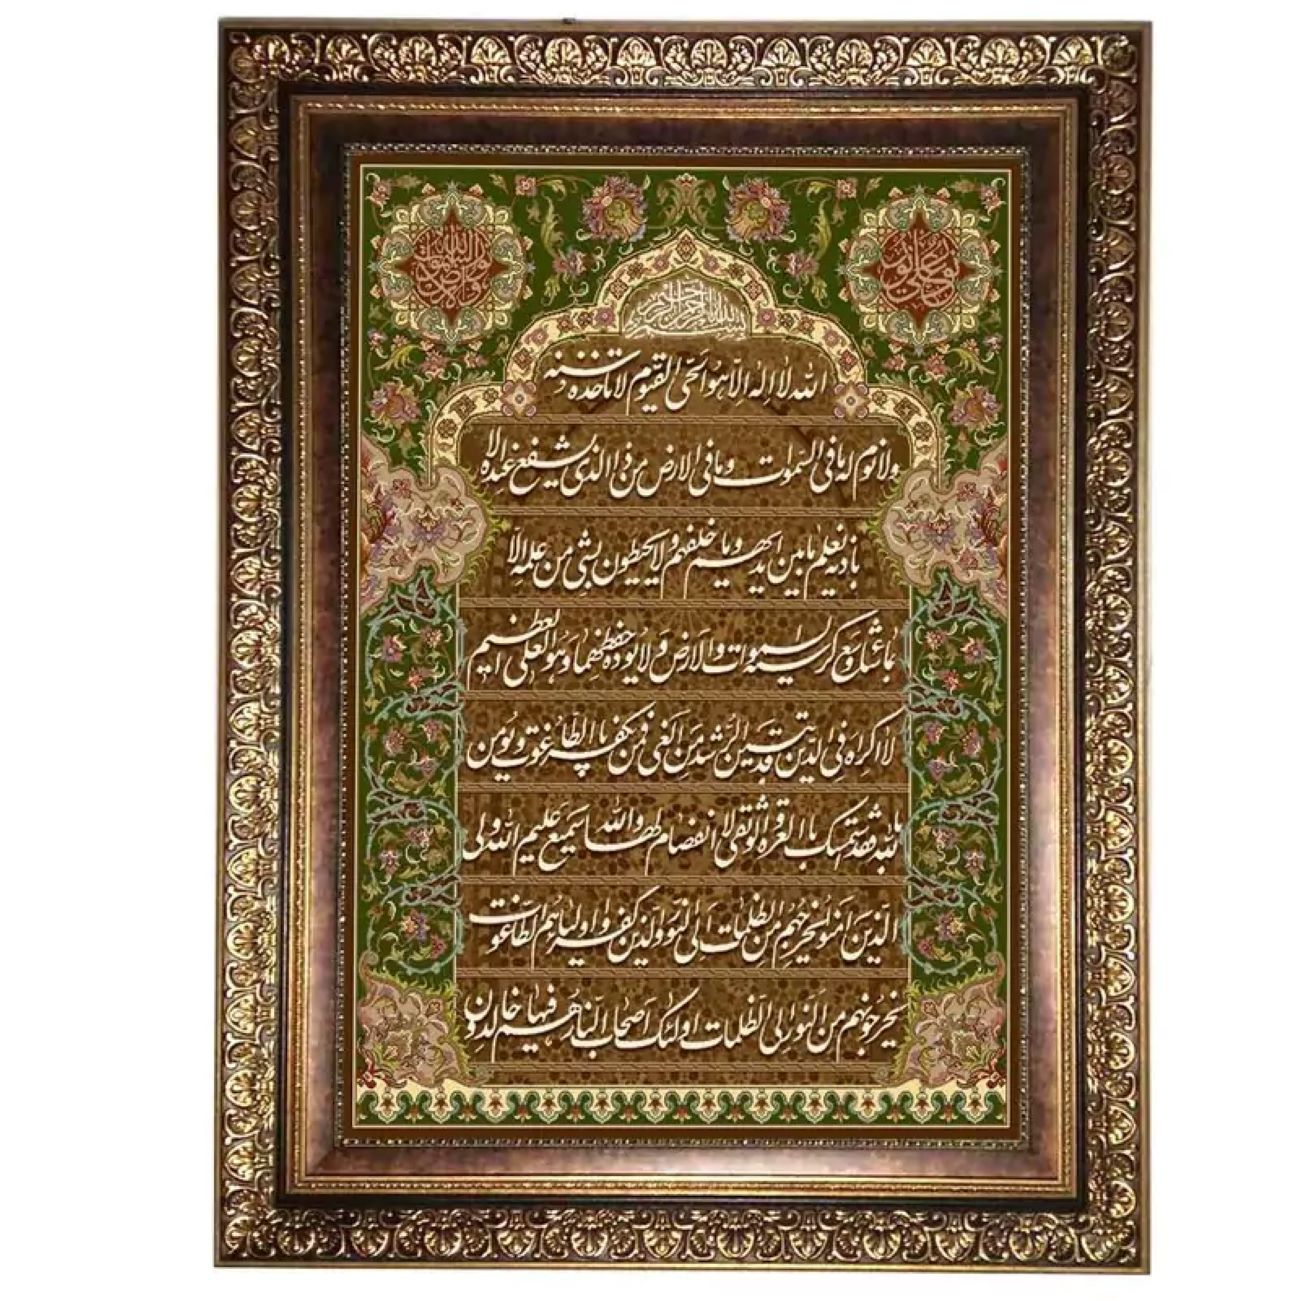 بسم الله الرحمن الرحیم
الله لا اله الا هو الحی القیوم لا تاخذه سنة
ولا نوم له ما فی السموات وما فی الارض من ذا الذی یشفع عنده الا
باذنه یعلم ما بین ایدیهم وما خلفهم ولا یحیطون بشیء من علمه الا
بما شاء وسع کرسیه السموات والارض ولا یوده حفظهما وهو العلی العظیم
لا اکراه فی الدین قد تبین الرشد من الغی فمن یکفر بالطاغوت ویومن
بالله فقد استمسک بالعروة الوثقی لا انفصام لها والله سمیع علیم الله ولی
الذین امنوا یخرجهم من الظلمات الی النور والذین کفروا اولیاوهم الطاغوت
یخرجونهم من النور الی الظلمات اولئک اصحاب النار هم فیها خالدون